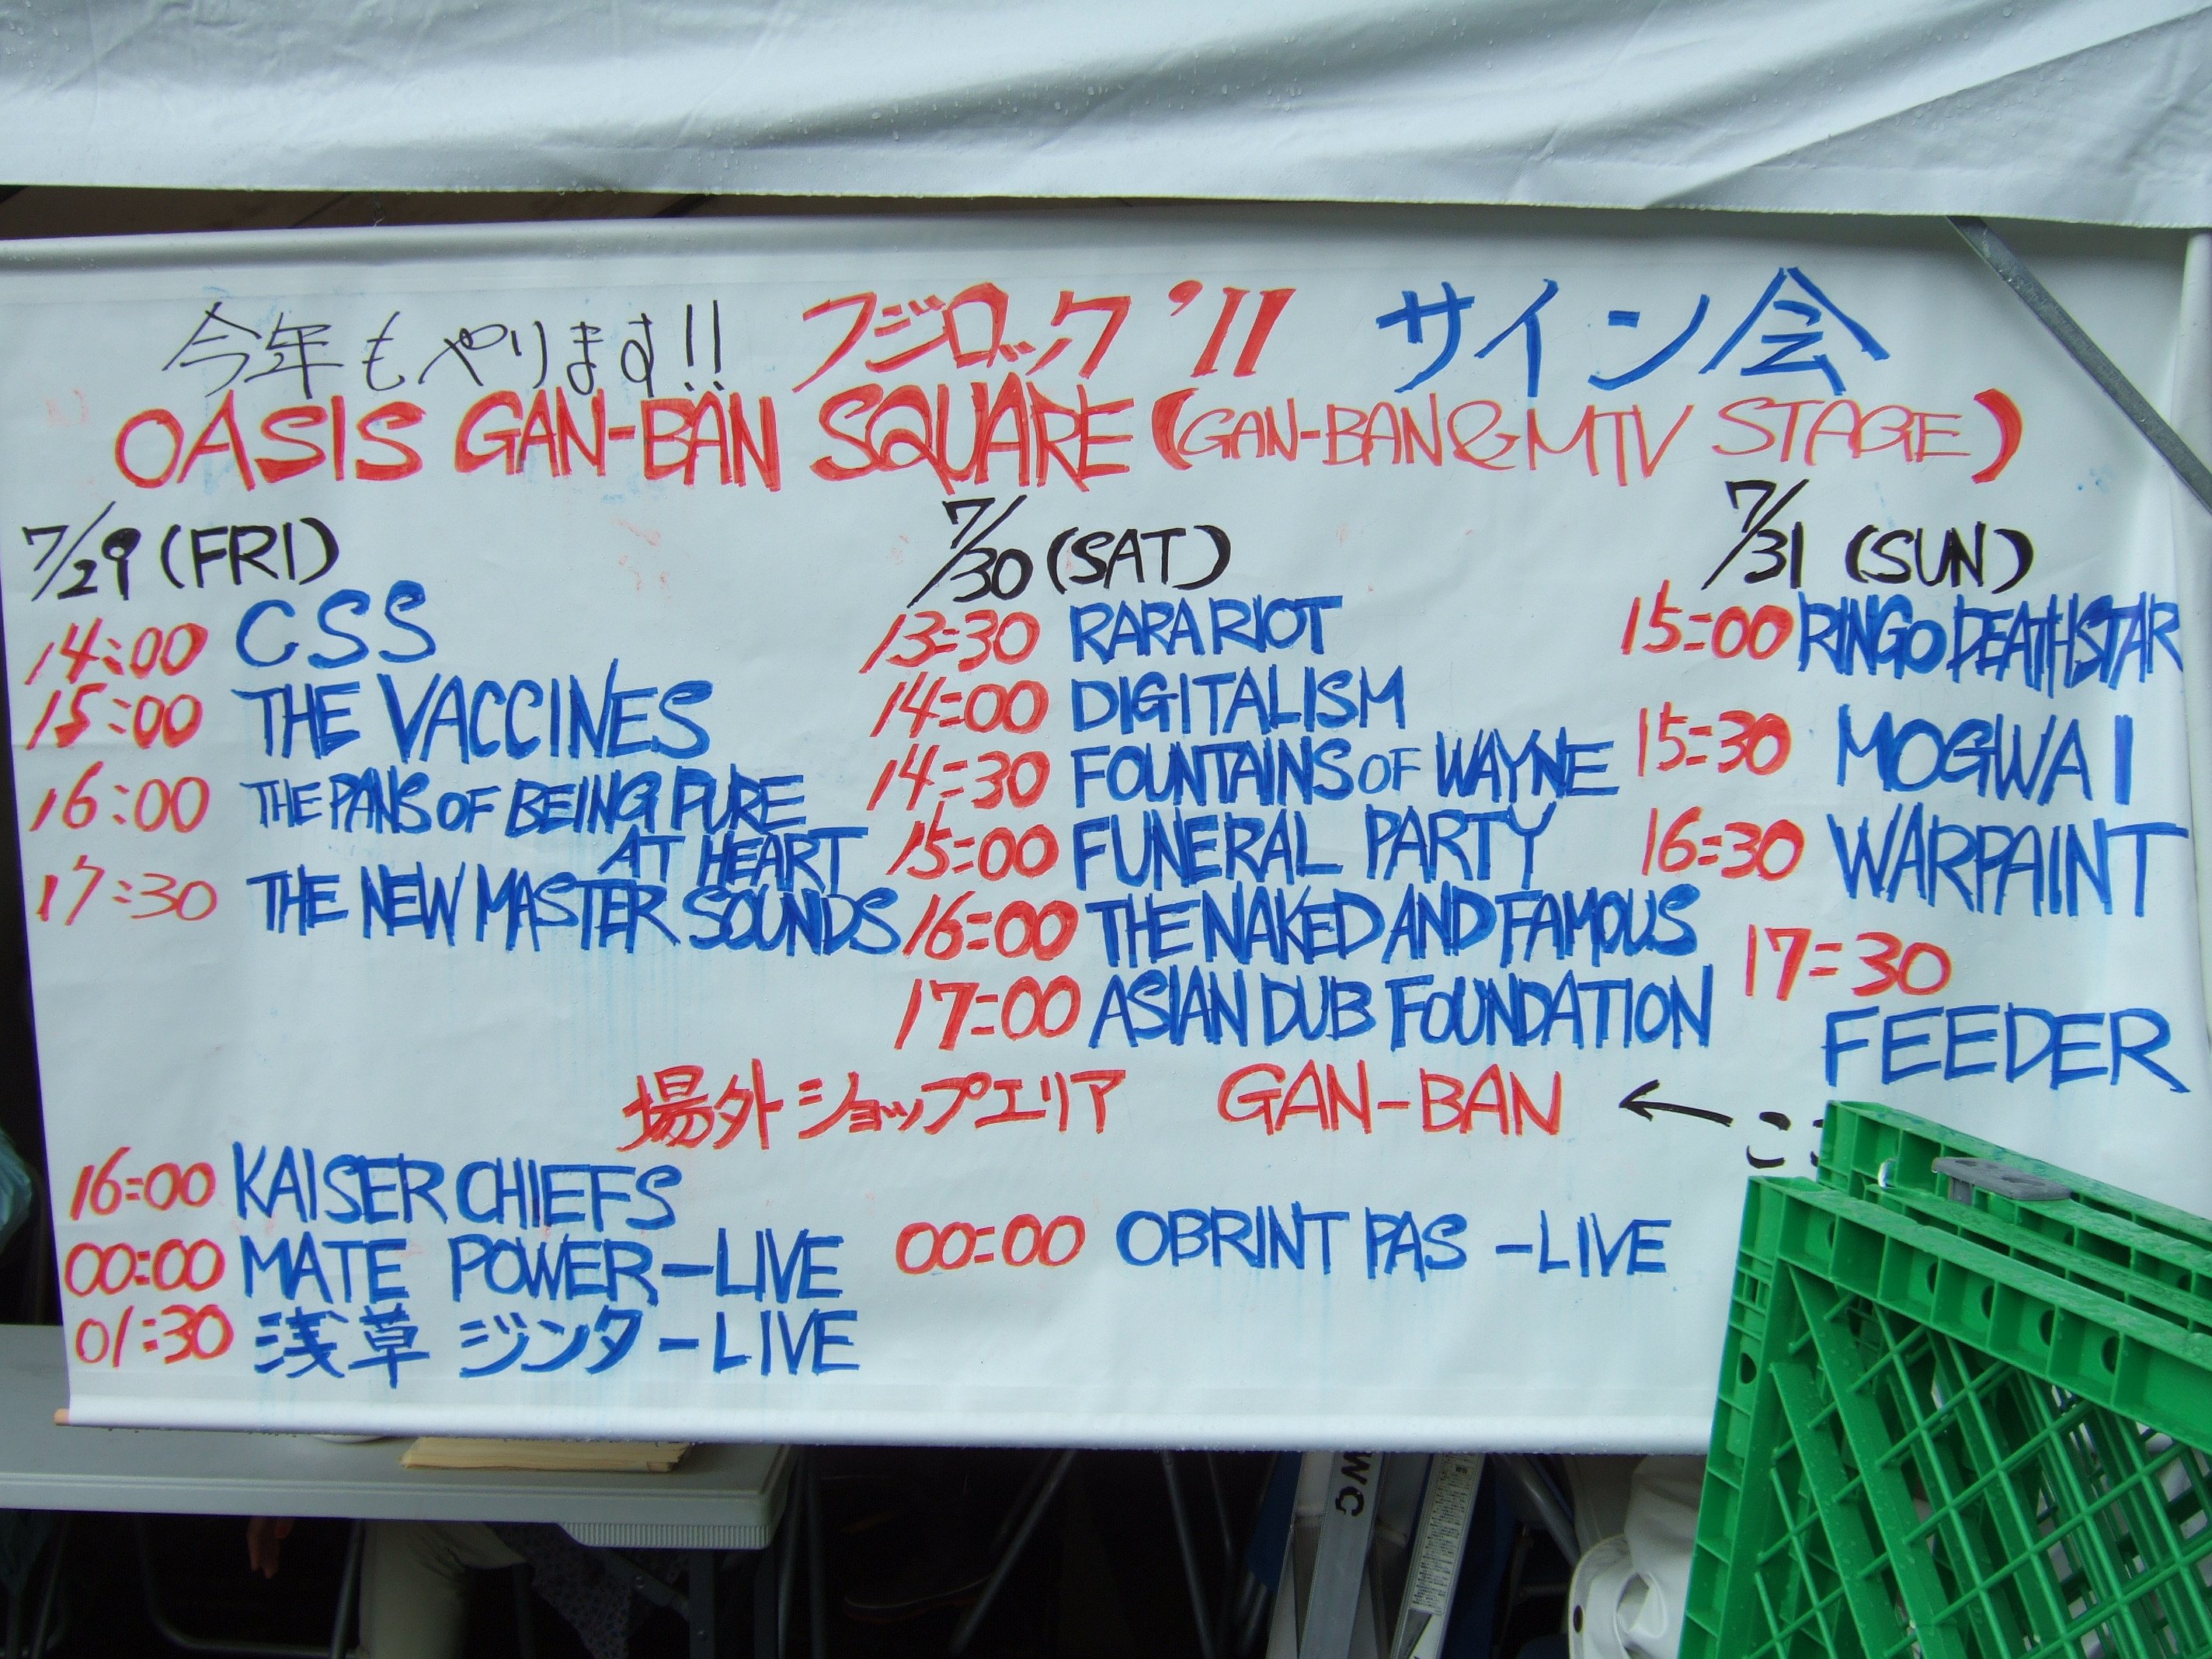 今年もやります!! フジロック '11 サイン会
OASIS GAN-BAN SQUARE (GAN-BAN & MTV STAGE)
7/29 (FRI)
14:00 CSS
15:00 THE VACCINES
16:00 THE PANS OF BEING PURE
AT HEART
17:30 THE NEW MASTER SOUNDS
7/30 (SAT)
13:30 RARA RIOT
14:00 DIGITALISM
14:30 FOUNTAINS OF WAYNE
15:00 FUNERAL PARTY
16:00 THE NAKED AND FAMOUS
17:00 ASIAN DUB FOUNDATION
7/31 (SUN)
15:00 RINGO DEATHSTAR
15:30 MOGWAI
16:30 WARPAINT
17:30
FEEDER
場外ショップエリア GAN-BAN ←
16:00 KAISER CHIEFS
00:00 MATE POWER-LIVE
01:30 浅草 ジンタ-LIVE
00:00 OBRINT PAS -LIVE